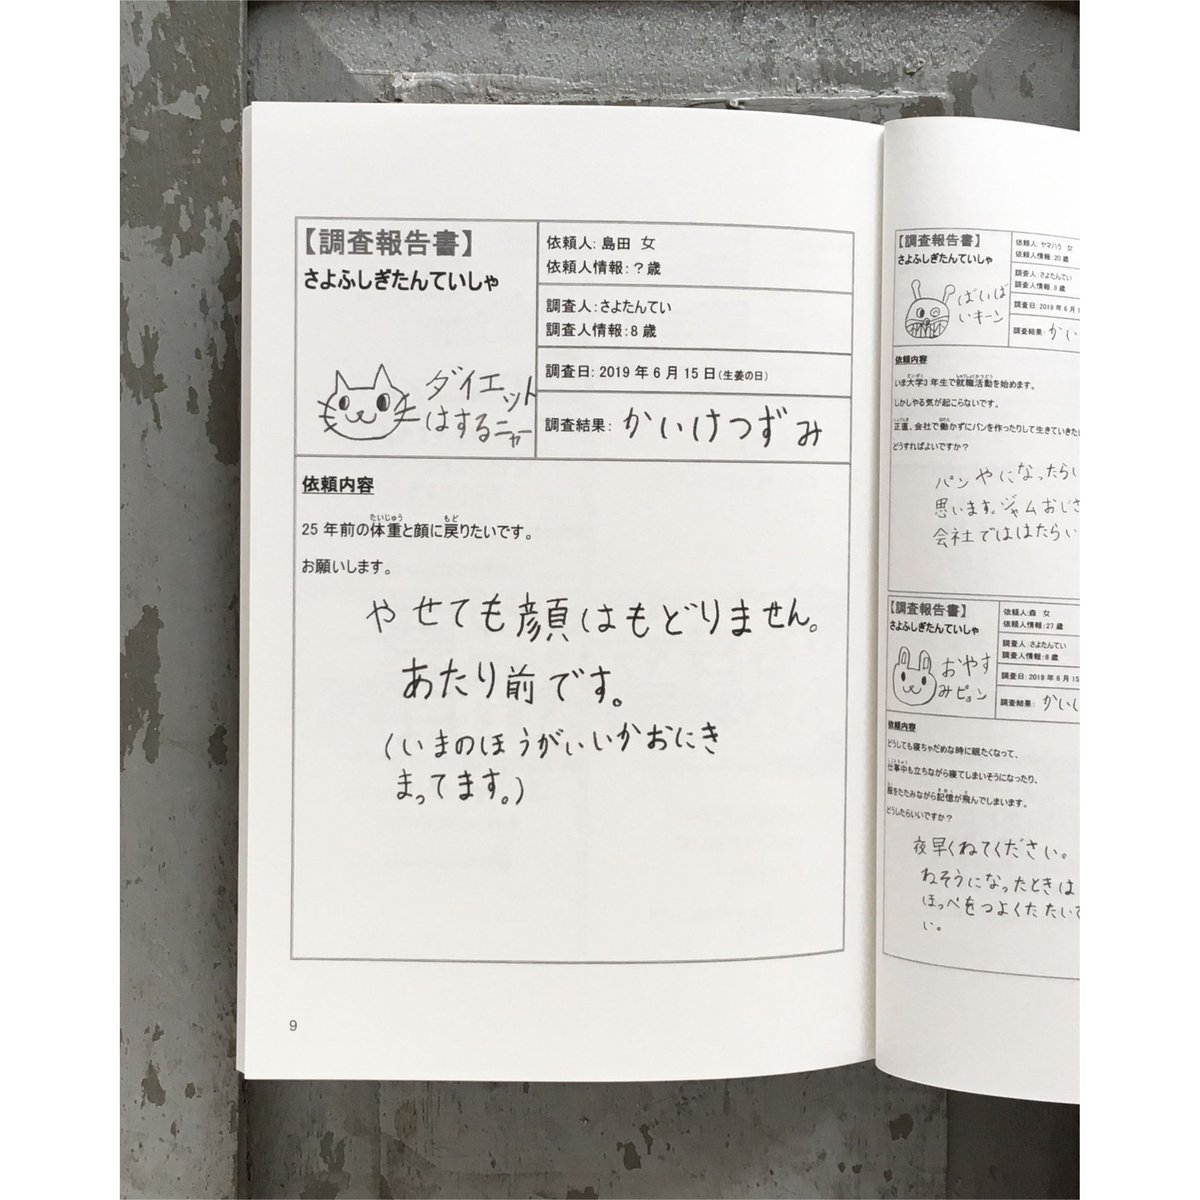 【調査報告書】
さよふしぎたんていしゃ
ダイエット
はするニャー
依頼人: 島田 女
依頼人情報: ?歳
調査人: さよたんてい
調査人情報: 8 歳
調査日: 2019 年 6 月 15 日 (生姜の日)
調査結果: かいけつずみ
依頼内容
25 年前の体重と顔に戻りたいです。
お願いします。
やせても顔はもどりません。
あたり前です。
(いまのほうがいいかおにき
まってます。)
9
【調査報告書】
さよふしぎたんていしゃ
ばいば
いキーン
依頼人: ヤマハラ 女
依頼人情報: 20 歳
調査人: さよたんてい
調査人情報: 8 歳
調査日: 2019 年 6 月 1
調査結果: かい
依頼内容
いま大学3 年生で就職活動を始めます。
しかしやる気が起こらないです。
正直、会社で働かずにパンを作ったりして生きていきたい
どうすればよいですか?
パンやになったらい
思います。ジャムおじさ
会社でははたらい
【調査報告書】
さよふしぎたんていしゃ
おやす
みピョン
依頼人: 森 女
依頼人情報: 27 歳
調査人: さよたんてい
調査人情報: 8 歳
調査日: 2019 年 6 月 15
調査結果: かい
依頼内容
どうしても寝ちゃだめな時に眠たくなって、
仕事中も立ちながら寝てしまいそうになったり、
服をたたみながら記憶が飛んでしまいます。
どうしたらいいですか?
夜早くねてください。
ねそうになったときは
ほっぺをつよくたたいて
い。